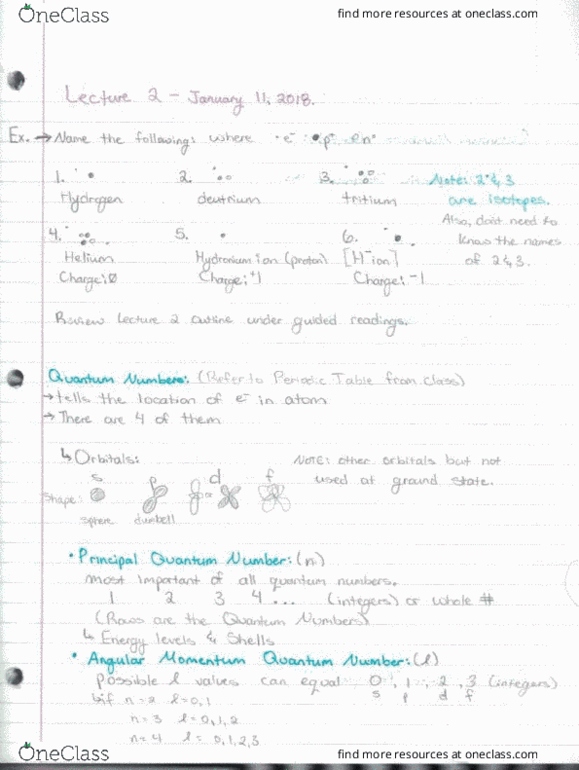 OneClass find more resources at oneclass.com
Lecture 2 - January 11, 2018.
Ex. → Name the following: where e⁻ p⁺ n°
1. 2. 3. Note: 2 & 3
Hydrogen deutrium tritium are isotopes.
Also, don't need to
4. 5. 6. know the names
Helium Hydronium ion (proton) [H⁻ion] of 2 & 3.
Charge: 0 Charge: +1 Charge: -1
Review Lecture 2 outline under guided readings.
Quantum Numbers: (Refer to Periodic Table from class)
→ tells the location of e⁻ in atom
→ There are 4 of them
↳ Orbitals: Note: other orbitals but not
s p d f used at ground state.
Shape: or
sphere dumbell
• Principal Quantum Number: (n)
most important of all quantum numbers.
1 2 3 4 ... (integers) or whole #
(Rows are the Quantum Numbers)
↳ Energy levels & Shells
• Angular Momentum Quantum Number: (l)
Possible l values can equal 0, 1, 2, 3 (integers)
s p d f
↳ if n = 2 l = 0, 1
n = 3 l = 0, 1, 2
n = 4 l = 0, 1, 2, 3
OneClass find more resources at oneclass.com